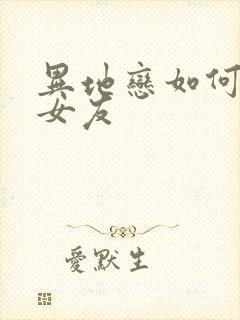 異地戀如何
女友
愛默生